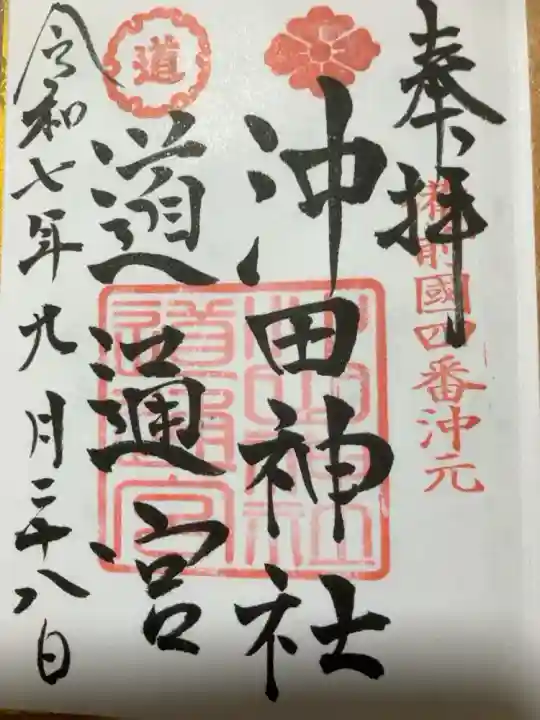 奉拝
備前國四番沖元
沖田神社
道
道通宮
令和七年九月二十八日